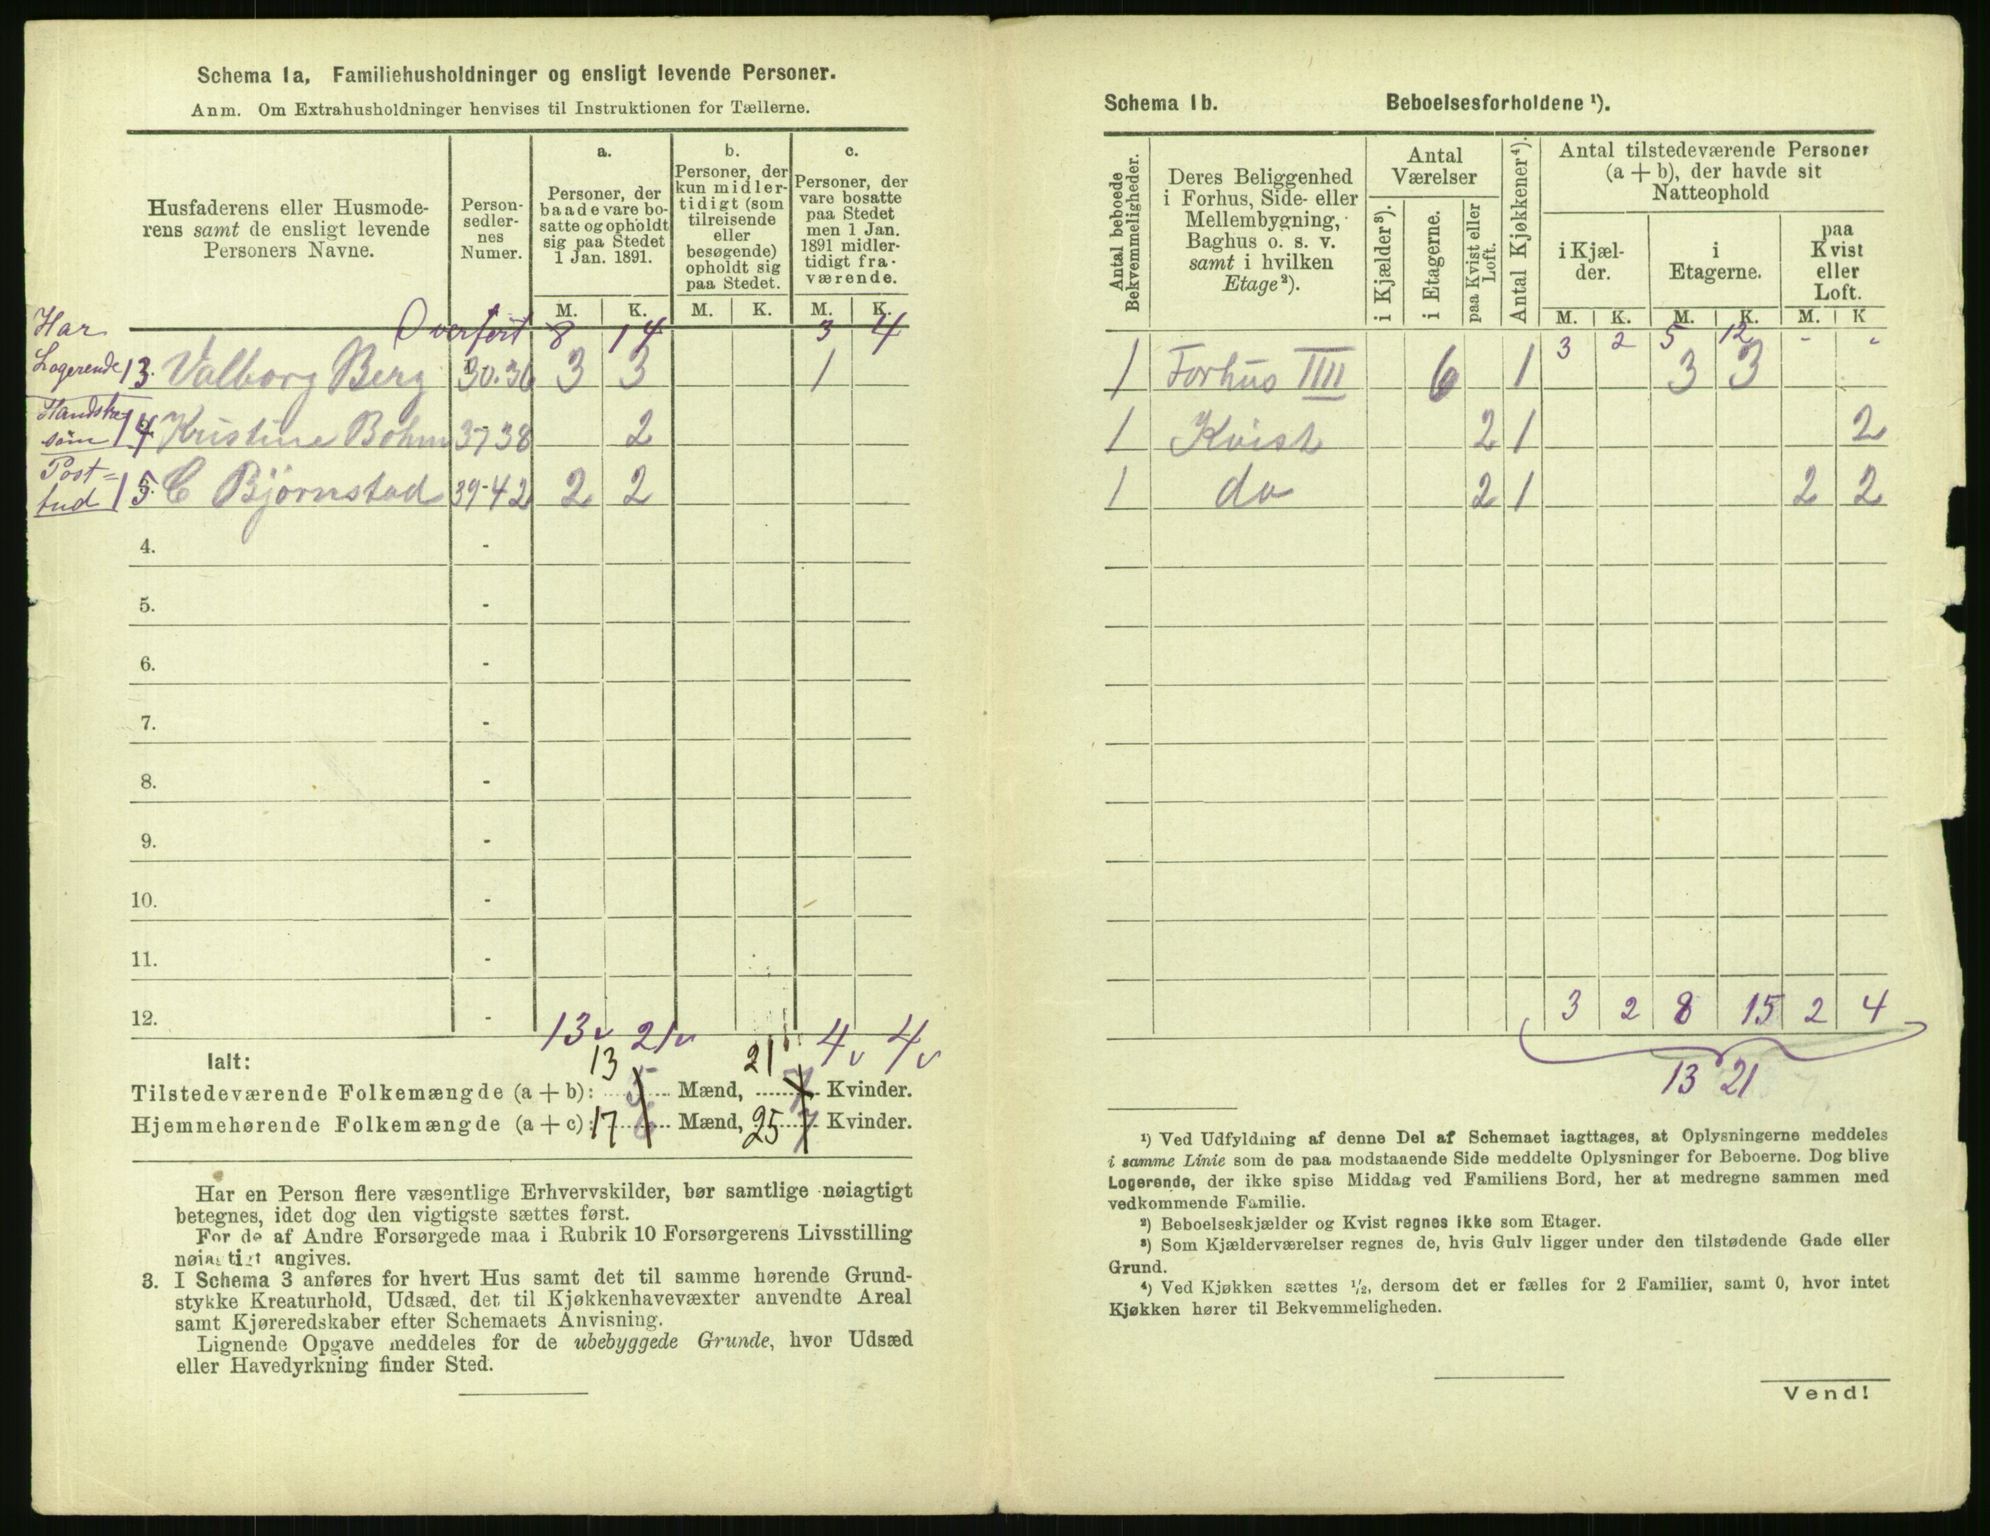 Schema 1a. Familiehusholdninger og ensligt levende Personer.
Anm. Om Extrahusholdninger henvises til Instruktionen for Tællerne.
Husfaderens eller Husmode-
rens samt de ensligt levende
Personers Navne.
Person-
sedler-
nes
Numer.
a.
Personer, der
baade vare bo-
satte og opholdt
sig paa Stedet
1 Jan. 1891.
b.
Personer, der
kun midler-
tidigt (som
tilreisende
eller
besøgende)
opholdt sig
paa Stedet.
c.
Personer, der
vare bosatte
paa Stedet
men 1 Jan.
1891 midler-
tidigt fra-
værende.
M. K. M. K. M. K.
Har Overført 8 14 3 4
Logerende 13. Valborg Berg 30.36 3 3 1
14 Kristine Bohm 37-38 2
søm
Post=
tud 15. C Bjørnstad 39-42 2 2
4. -
5. -
6. -
7. -
8. -
9. -
10. -
11. -
12. -
13 v 21 v 4 v 4 v
Ialt:
13 21
Tilstedeværende Folkemængde (a + b): 5 Mænd, 7 Kvinder.
Hjemmehørende Folkemængde (a + c): 17 6 Mænd, 25 7 Kvinder.
Har en Person flere væsentlige Erhvervskilder, bør samtlige nøiagtigt
betegnes, idet dog den vigtigste sættes først.
For de af Andre Forsørgede maa i Rubrik 10 Forsørgerens Livsstilling
nøiagtigt angives.
3. I Schema 3 anføres for hvert Hus samt det til samme hørende Grund-
stykke Kreaturhold, Udsæd, det til Kjøkkenhavevæxter anvendte Areal
samt Kjøreredskaber efter Schemaets Anvisning.
Lignende Opgave meddeles for de ubebyggede Grunde, hvor Udsæd
eller Havedyrkning finder Sted.
Schema 1b. Beboelsesforholdene ¹).
Antal beboede
Bekvemmeligheder.
Deres Beliggenhed
i Forhus, Side- eller
Mellembygning,
Baghus o. s. v.
samt i hvilken
Etage²).
Antal
Værelser
i Kjælder³).
i Etagerne.
paa Kvist eller
Loft.
Antal Kjøkkener⁴).
Antal tilstedeværende Personer
(a + b), der havde sit
Natteophold
i Kjæl-
der.
i
Etagerne.
paa
Kvist
eller
Loft.
M. K. M. K. M. K
3 2 5 12 - -
1 Forhus IIII 6 1 3 3
1 Kvist 2 1 2
1 do 2 1 2 2
3 2 8 15 2 4
13 21
¹) Ved Udfyldning af denne Del af Schemaet iagttages, at Oplysningerne meddeles
i samme Linie som de paa modstaaende Side meddelte Oplysninger for Beboerne. Dog blive
Logerende, der ikke spise Middag ved Familiens Bord, her at medregne sammen med
vedkommende Familie.
²) Beboelseskjælder og Kvist regnes ikke som Etager.
³) Som Kjælderværelser regnes de, hvis Gulv ligger under den tilstødende Gade eller
Grund.
⁴) Ved Kjøkken sættes ¹/₂, dersom det er fælles for 2 Familier, samt 0, hvor intet
Kjøkken hører til Bekvemmeligheden.
Vend!